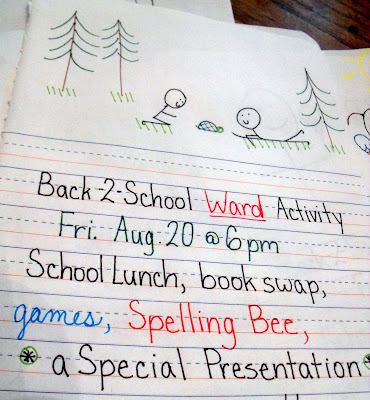 Back-2-School Ward Activity
Fri. Aug. 20 @ 6pm
School Lunch, book swap,
games, Spelling Bee,
a Special Presentation